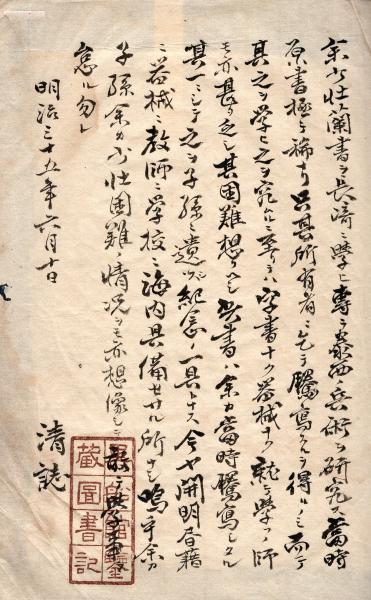 余少壮蘭書ヲ長崎ニ學ヒ專ラ泰西ノ兵術ヲ研究ス當時
原書極テ稀ナリ只其所有者ニ乞テ謄寫スルヲ得ルノミ而テ
其之ヲ學ヒ之ヲ究ムルニ至テハ字書ナク器械ナク就テ學フノ師
モ亦甚タ乏シ其困難想フヘシ此書ハ余カ當時謄寫シタル
其一ニシテ之ヲ子孫ニ遺シ以テ紀念ノ一具トナス今ヤ開明書籍
ニ器械ニ教師ニ學校ニ海内具備セサル所ナシ嗚乎余カ
子孫余カ少壮困難ノ情況ヲモ亦想像シテ敢テ學業
怠ル勿レ
明治三十五年六月十日
清誌
藏圖書記